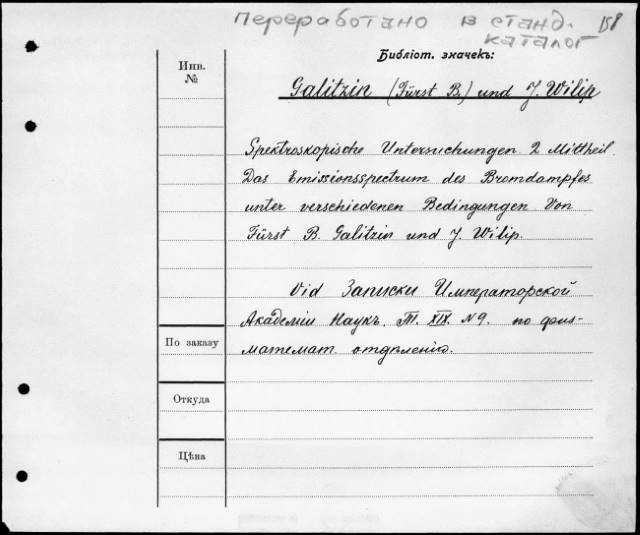 переработано в станд. 158
каталог
Библіот. значекъ:
Инв.
№
Galitzin (Fürst B.) und J. Wilip
Spektroskopische Untersuchungen. 2 Mittheil.
Das Emissionsspectrum des Bromdampfes
unter verschiedenen Bedingungen Von
Fürst B. Galitzin und J. Wilip.
Vid Записки Императорской
Академіи Наукъ. Т. XIX. № 9. по физ-
математ. отдѣленію.
По заказу
Откуда
Цѣна